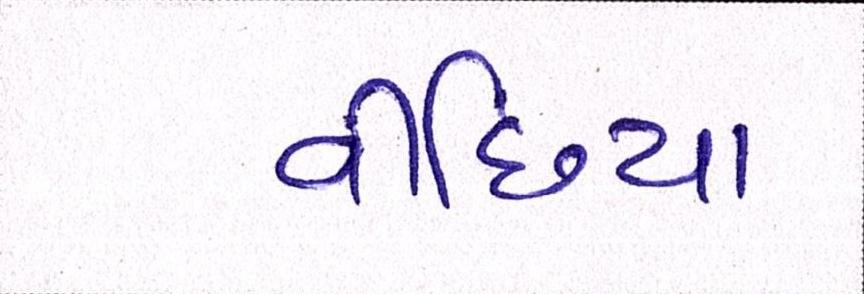 વીછિયા